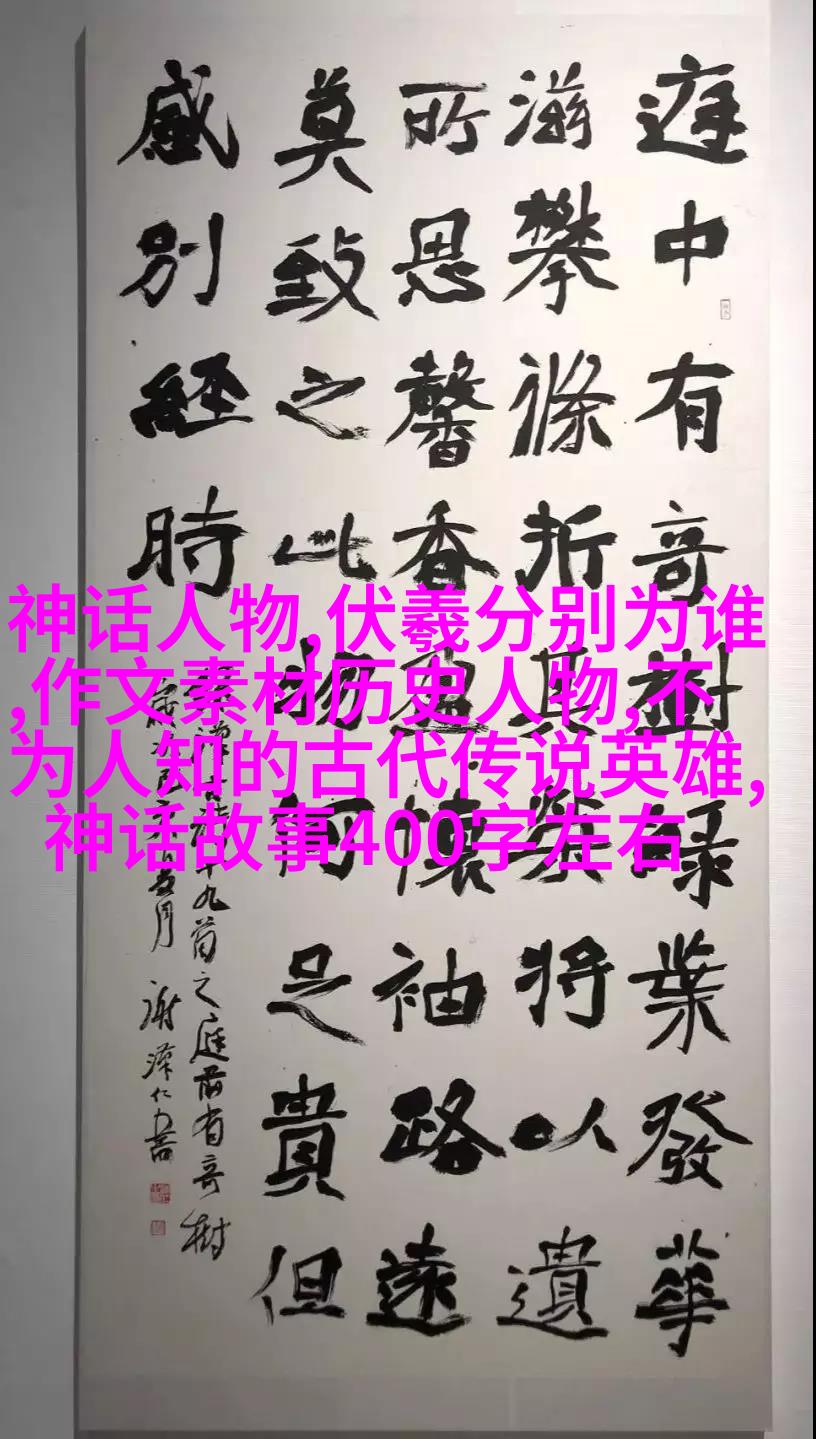 庭中有奇樹緑葉發華
滋攀條折其榮將以遺
所思馨香盈懷袖路遠
莫致之此物何足貴但
感別經時
十九首之庭前有奇樹
月谢泽仁书
神话人物,伏羲分别为谁
,作文素材历史人物,不
为人知的古代传说英雄,
神话故事400字左右